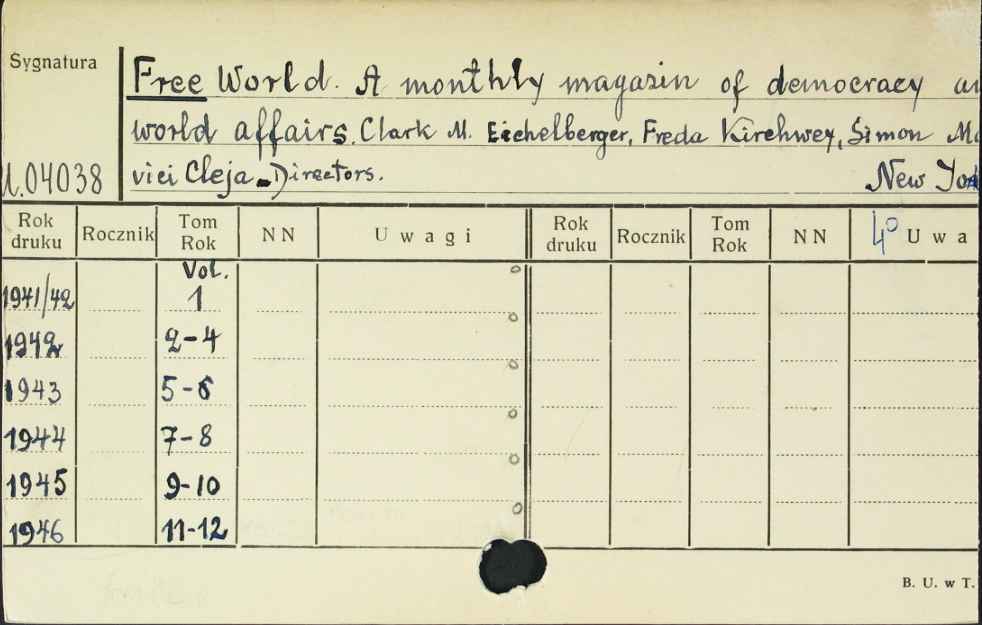 Sygnatura
Free World. A monthly magazin of democracy
world affairs. Clark M. Eichelberger, Freda Kirchwey, Simon
U.04038 vici Cleja - Directors. New York
Rok druku Rocznik Tom Rok NN Uwagi Rok druku Rocznik Tom Rok NN 4° Uwa
Vol.
1941/42 1
1942 2-4
1943 5-6
1944 7-8
1945 9-10
1946 11-12
B. U. w T.